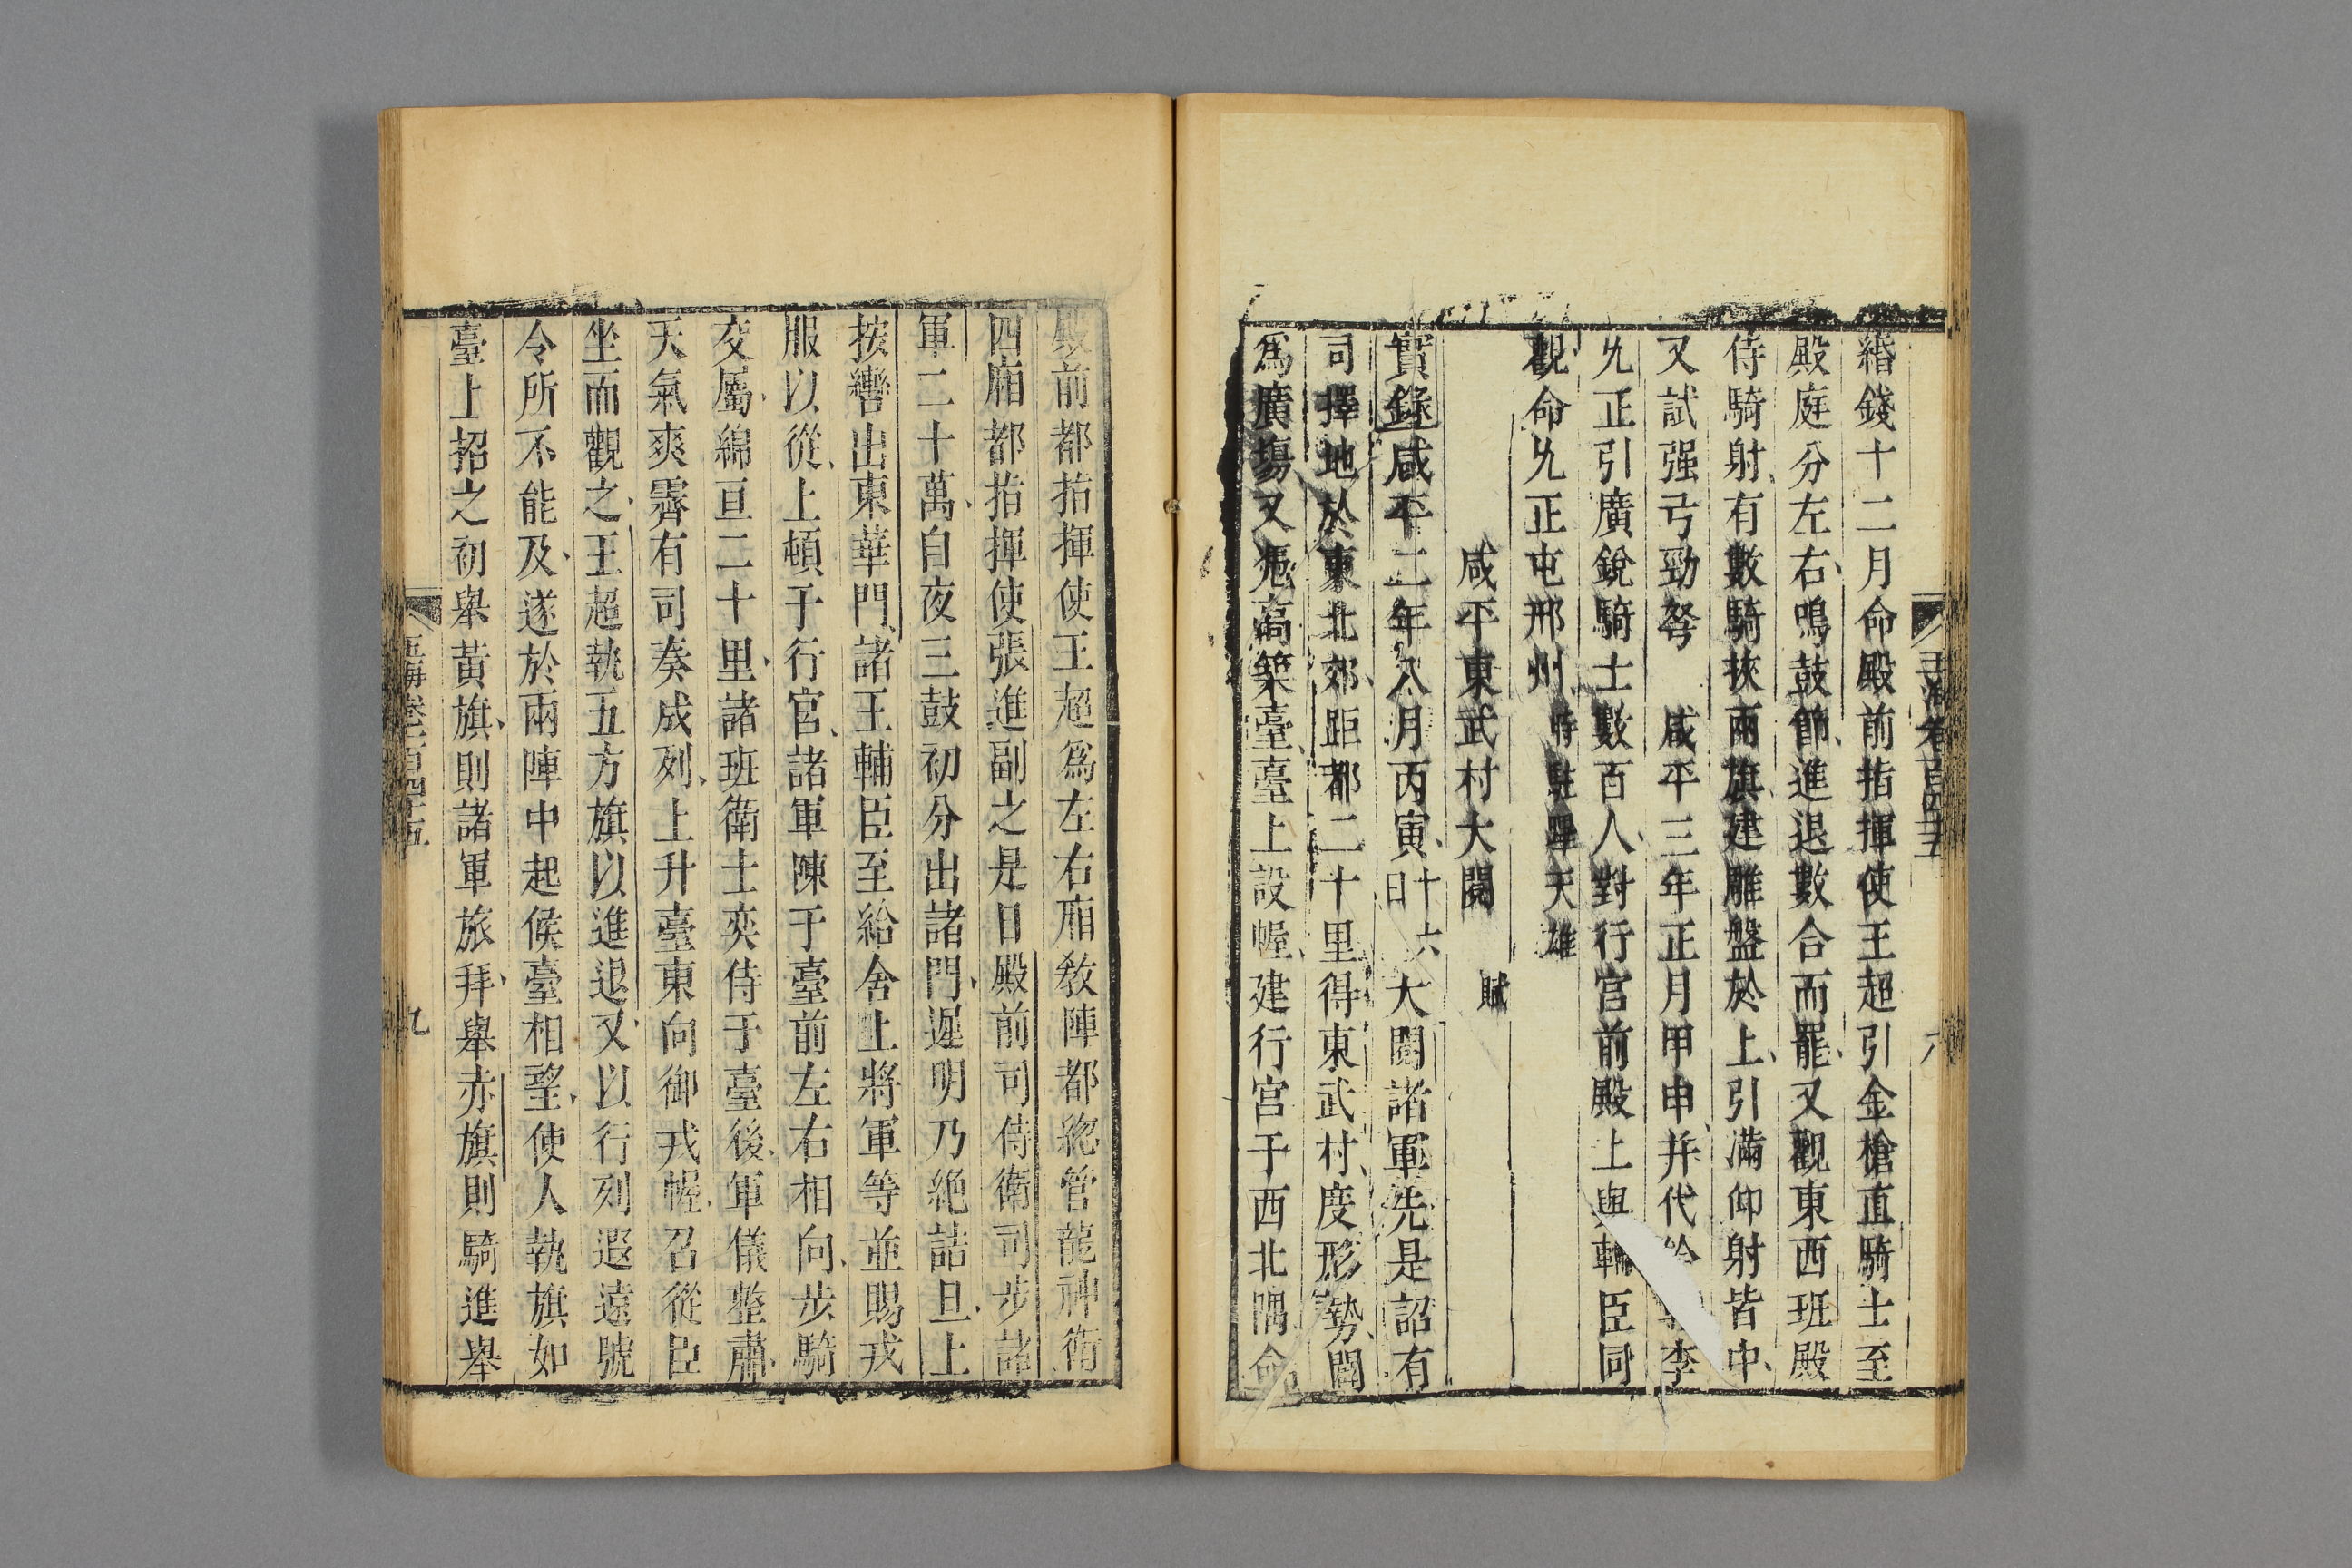 緡錢十二月命殿前指揮使王超引金槍直騎士至
殿庭分左右鳴鼓節進退數合而罷又觀東西班殿
侍騎射有數騎挾兩旗建雕盤於上引滿仰射皆中
又試强弓勁弩　咸平三年正月甲申幷代李
允正引廣銳騎士數百人對行宮前殿上與輔臣同
觀命允正屯邢州時駐蹕天雄
咸平東武村大閱　賦
實錄咸平二年八月丙寅十六日大閱諸軍先是詔有
司擇地於東北郊距都二十里得東武村度形勢闢
爲廣場又憑高築臺臺上設幄建行宮于西北隅命
玉海卷百四十五
殿前都指揮使王超爲左右廂敎陣都緫管龍神衛
四廂都指揮使張進副之是日殿前司侍衛司步諸
軍二十萬自夜三鼓初分出諸門遲明乃絶詰旦上
按轡出東華門諸王輔臣至給舍上將軍等並賜戎
服以從上頓于行宮諸軍陳于臺前左右相向步騎
交屬綿亘二十里諸班衛士奕侍于臺後軍儀整肅
天氣爽霽有司奏成列上升臺東向御戎幄召從臣
坐而觀之王超執五方旗以進退又以行列遐遠號
令所不能及遂於兩陣中起候臺相望使人執旗如
臺上招之初舉黃旗則諸軍旅拜舉赤旗則騎進舉
玉海卷一百四十五　九